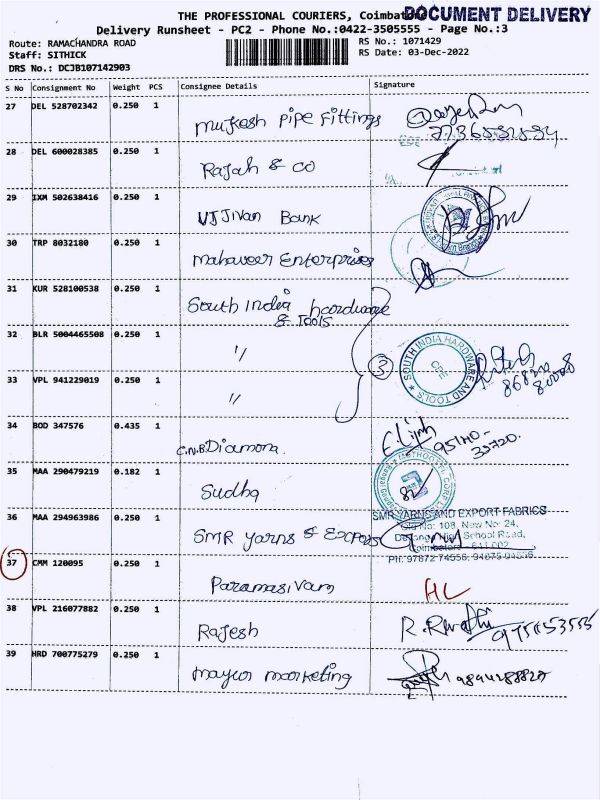 THE PROFESSIONAL COURIERS, Coimbato
DOCUMENT DELIVERY
Delivery Runsheet - PC2 - Phone No.:0422-3505555 - Page No.:3
Route: RAMACHANDRA ROAD
RS No.: 1071429
Staff: SITHICK
RS Date: 03-Dec-2022
DRS No.: DCJB107142903
S No Consignment No Weight PCS Consignee Details Signature
27 DEL 528702342 0.250 1 Mukesh Pipe Fittings
28 DEL 600028385 0.250 1 Rajah & co
29 IXM 502638416 0.250 1 Ujjivan Bank
30 TRP 8032180 0.250 1 Mahaveer Enterprises
31 KUR 528100538 0.250 1 South India hardware
& Tools
32 BLR 5004465508 0.250 1 "
3
SOUTH INDIA HARDWARE AND TOOLS
CBE
33 VPL 941229019 0.250 1 "
34 BOD 347576 0.435 1 C.N.B Diamond
95140-
35 MAA 290479219 0.182 1 Sudha
36 MAA 294963986 0.250 1 SMR Yarns & Exports
SMR YARNS AND EXPORT FABRICS
Old No: 108, New No: 24,
High School Road,
Coimbatore - 641 002
PH: 97872 74556,
37 CMM 120095 0.250 1 Paramasivam HL
38 VPL 216077882 0.250 1 Rajesh
39 HRD 700775279 0.250 1 Mayur marketing